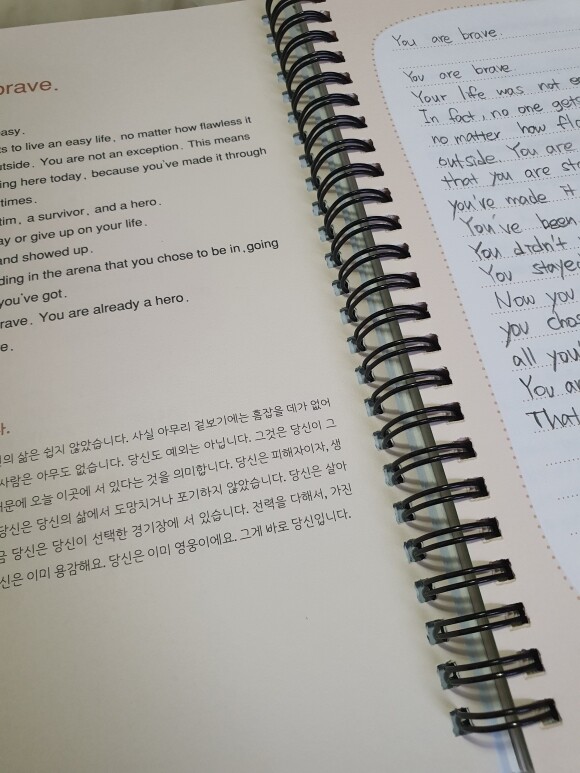 brave.
easy.
to live an easy life, no matter how flawless it
outside. You are not an exception. This means
ing here today, because you've made it through
times.
tim, a survivor, and a hero.
ay or give up on your life.
and showed up.
ding in the arena that you chose to be in, going
you've got.
rave. You are already a hero.
e.
다.
의 삶은 쉽지 않았습니다. 사실 아무리 겉보기에는 흠잡을 데가 없어
사람은 아무도 없습니다. 당신도 예외는 아닙니다. 그것은 당신이 그
때문에 오늘 이곳에 서 있다는 것을 의미합니다. 당신은 피해자이자, 생
당신은 당신의 삶에서 도망치거나 포기하지 않았습니다. 당신은 살아
금 당신은 당신이 선택한 경기장에 서 있습니다. 전력을 다해서, 가진
신은 이미 용감해요. 당신은 이미 영웅이에요. 그게 바로 당신입니다.
You are brave.
You are brave
Your life was not
In fact, no one gets
no matter how
outside. You are
that you are
you've made it
You've been
You didn't
You stayed
Now you
you chos
all you'
You ar
That